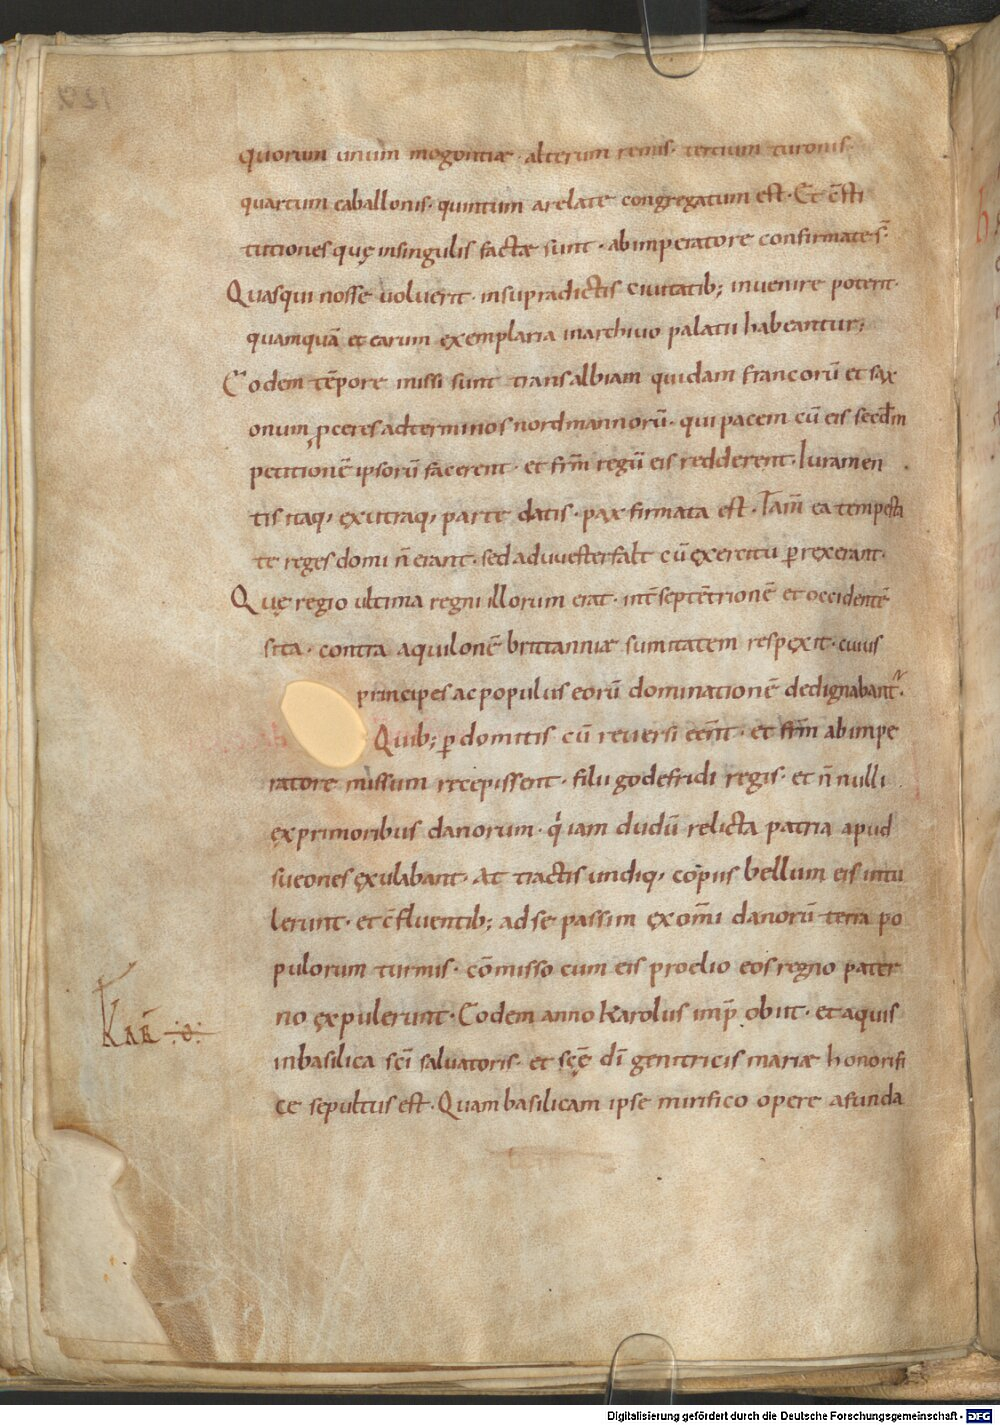 quorum unum mogontiæ · alterum remis · tertium turonis ·
quartum caballonis · quintum arelate congregatum est · Et c̄sti
tutiones quę insingulis factæ sunt · abimperatore confirmate s̄ ·
Quasqui nosse uoluerit · insupradictis ciuitatib; inuenire poterit ·
quamquā et earum exemplaria inarchiuo palatii habeantur;
Eodem tēpore missi sunt transalbiam quidam francorū et sax
onum ꝓceres adterminos nordmannorū · qui pacem cū eis secdm̄
petitionē ipsorū facerent · et frm̄ regū eis redderent · Iuramen
tis itaq; exutraq; parte datis · pax firmata est · Iam̄ ea tempesta
te reges domi n̄ erant · sed aduuesterfalt cū exercitu ꝑrexerant ·
Quę regio ultima regni illorum erat · int̄ septētrionē et occidentē
sita · contra aquilonē brittanniæ sumitatem respexit · cuius
principes ac populus eorū dominationē dedignabant᷑ ·
Quib; ꝑdomitis cū reuersi eēnt · et frm̄ abimpe
ratore missum recepissent · filii godefridi regis · et n̄nulli
exprimoribus danorum · qͥ iam dudū relicta patria apud
sueones exulabant · At tractis undiq; copiis bellum eis intu
lerunt · et c̄fluentib; adse passim exom̄i danorū terra po
pulorum turmis · cōmisso cum eis proelio eos regno pater
no expulerunt · Eodem anno Karolus imp̄ obiit · et aquis
inbasilica sc̄i saluatoris · et sc̄ę dī genitricis mariæ honorifi
ce sepultus est · Quam basilicam ipse mirifico opere afunda
Kar̄ · o ·
Digitalisierung gefördert durch die Deutsche Forschungsgemeinschaft - DFG